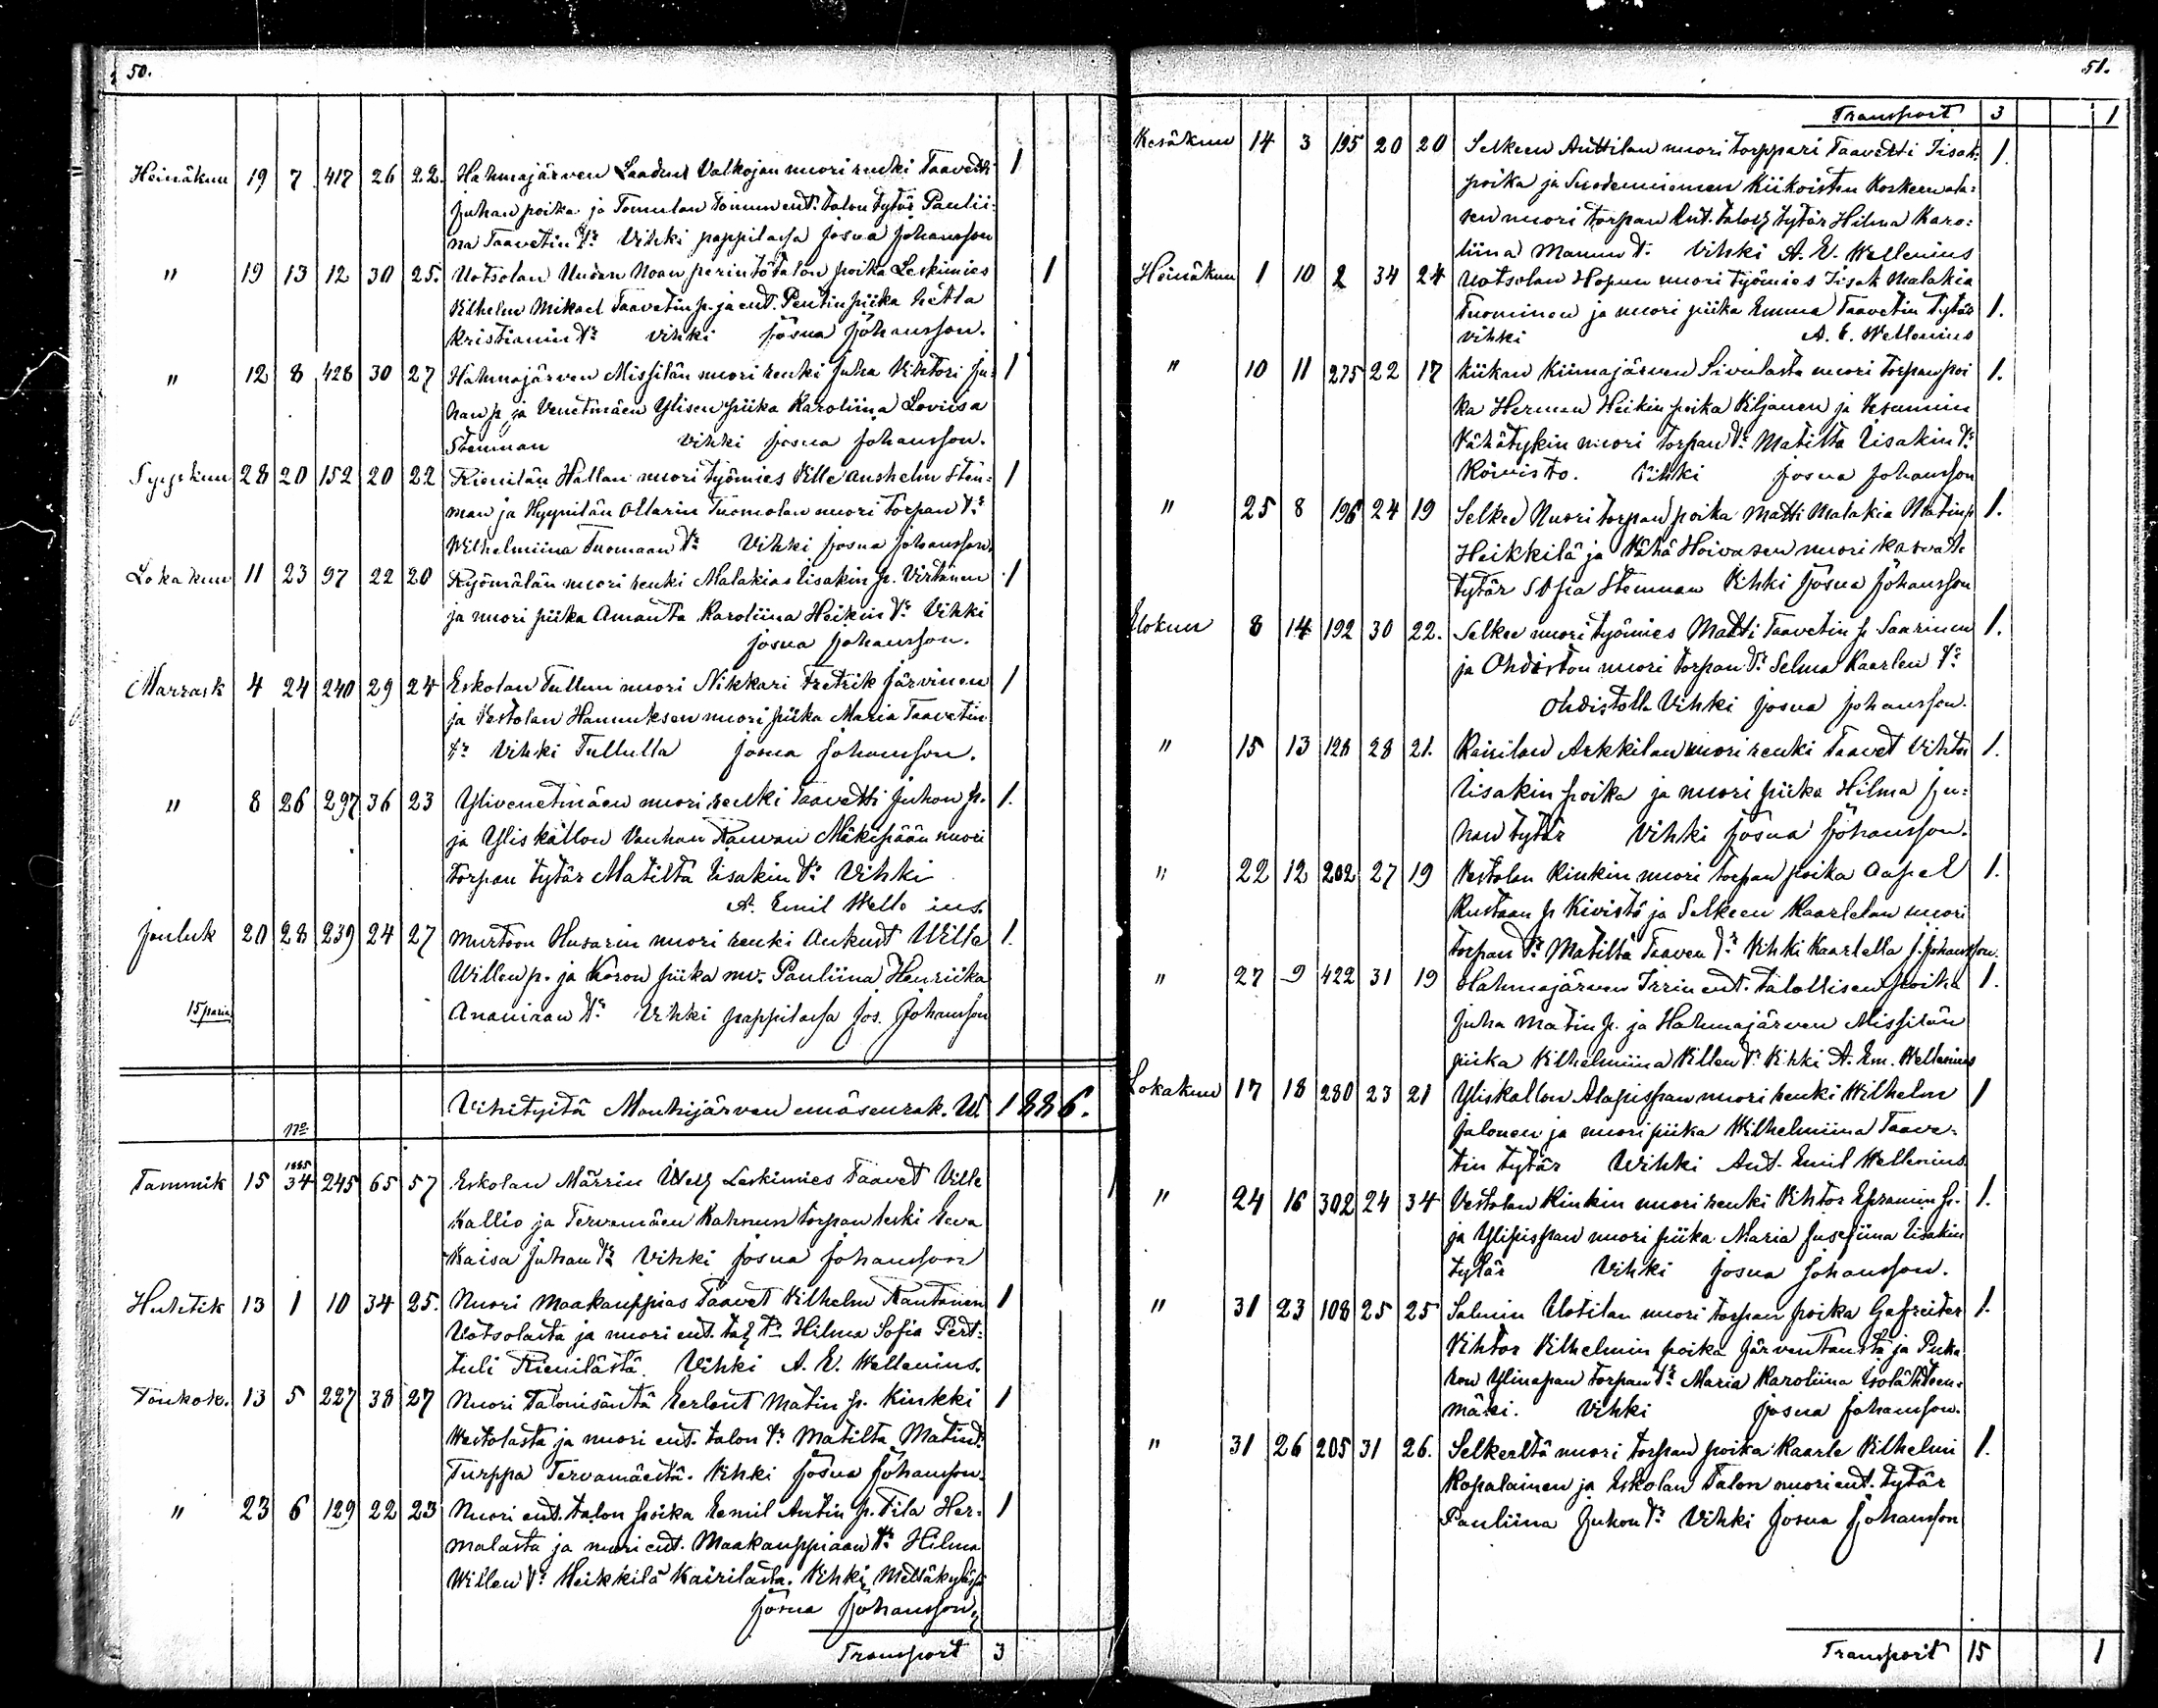 50.
Heinäkuu 19 7 417 26 22. Hahmajärven Laadun Valkojan nuori renki Taavetti 1
Juhan poika ja Tomulan Toimun ent. talon tytär Paulii-
na Taavetin tr. Vihki pappilassa Josua Johansson
" 19 13 12 30 25. Uotsolan Unóan Noan perintötalon poika Leskimies 1
Vilhelm Mikael Taavetin p. ja ent. Pentin piika Hetta
Kristianin tr Vihki Josua Johansson.
" 12 8 428 30 27 Hahmajärven Missilän nuori renki Juha Vihtori Ju- 1
han p. ja Venetmäen Ylisen piika Karoliina Loviisa
Stenman Vihki Josua Johansson.
Syyskuu 28 20 152 20 22 Kiemilän Hallan nuori työmies Ville Anshelm Sten- 1
man ja Hyynilän Ollarin Tuomolan nuori torpan tr
Wilhelmiina Tuomaan tr Vihki Josua Johansson.
Lokakuu 11 23 97 22 20 Ryömälän nuori renki Malakias Iisakin p. Virtanen 1
ja nuori piika Amanta Karoliina Heikin tr Vihki
Josua Johansson.
Marrask 4 24 240 29 24 Eskolan Tullun nuori Nikkari Fretrik Järvinen 1
ja Vestolan Hannuksen nuori piika Maria Taavetin
tr Vihki Tullulla Josua Johansson.
" 8 26 297 36 23 Ylivenetmäen nuori renki Taavetti Juhon p. 1.
ja Yliskallon Vanhan Rauvan Mäkipään nuori
torpan tytär Matilta Iisakin tr Vihki
A. Emil Wellenius.
Jouluk 20 28 239 24 27 Murtoon Husarin nuori renki Aukust Willa 1.
Willen p. ja Koron piika nv. Pauliina Henriika
15 paria Ananiaan tr Vihki pappilassa Jos. Johansson
Vihityitä Mouhijärven emäseurak. W. 1886.
No
1885
Tammik 15 34 245 65 57 Eskolan Märrin Leskimies Taavet Ville 1
Kallio ja Tervamäen Kahnun torpan leski Eeva
Kaisa Juhan tr Vihki Josua Johansson
Huhtik 13 1 10 34 25. Nuori Maakauppias Taavet Vilhelm Rantanen 1
Uotsolasta ja nuori ent. tal tr Hilma Sofia Pert-
tuli Kiemilästä. Vihki A. E. Wellenius.
Toukok. 13 5 227 38 27 Nuori Talonisäntä Eerlant Matin p. Kinkki 1
Westolasta ja nuori ent. talon tr Matilta Matint.
Turppa Tervamäestä. Vihki Josua Johansson.
" 23 6 129 22 23 Nuori ent. talon poika Eemil Antin p. Tila Her- 1
malasta ja nuori ent. Maakauppiaan tr Hilma
Willen tr Heikkilä Kairilasta. Vihki Metsäkylässä
Josua Johansson
Transport 3
51.
Transport 3 1
Kesäkuu 14 3 195 20 20 Selkeen Anttilan nuori torppari Taavetti Iisak- 1.
poika ja Suodenniemen Kiikoisten Koskenala-
sen nuori torpan ent. talon tytär Hilma Karo-
liina Manun t. Vihki A. E. Wellenius
Heinäkuu 1 10 2 34 24 Uotsolan Hopun nuori työmies Iisak Malakia
Tuominen ja nuori piika Emma Taavetin tytär 1.
Vihki A. E. Wellenius
" 10 11 275 22 17 Kiikan Kiimajärven Sivulasta nuori torpan poi 1.
ka Herman Heikin poika Viljanen ja Vesunnin
Vähätykin nuori torpan tr Matilta Iisakin tr
Koivisto. Vihki Josua Johansson
" 25 8 196 24 19 Selkee Nuori torpan poika Matti Malakia Matin p 1.
Heikkilä ja Vähä Hoivasen nuori kasvati
tytär Sofia Stenman Vihki Josua Johansson
Elokuu 8 14 192 30 22. Selkee nuori työmies Matti Taavetin p. Saarinen 1.
ja Ohdiston nuori torpan tr Selma Kaarlen tr
Ohdistolla Vihki Josua Johansson.
" 15 13 126 28 21. Kairilan Arkkilan nuori renki Taavet Vihtor 1.
Iisakin poika ja nuori piika Hilma Ju-
han tytär Vihki Josua Johansson.
" 22 12 202 27 19 Vestolan Kinkin nuori torpan poika Aapel 1.
Kustaan p Kivistö ja Selkeen Kaarlelan nuori
torpan tr Matilta Taaven tr Vihki Kaarlella J. Johansson.
" 27 9 422 31 19 Hahmajärven Irrin ent. talollisen poika 1.
Juha Matin p. ja Hahmajärven Missilän
piika Vilhelmiina Villen tr Vihki A. Em. Wellenius
Lokakuu 17 18 280 23 21 Yliskallon Alapispan nuori renki Wilhelm 1
Jalonen ja nuori piika Wilhelmiina Taave-
tin tytär Wihki Ant. Emil Wellenius
" 24 16 302 24 34 Vestolan Kinkin nuori renki Vihtor Epramin p. 1.
ja Ylipispan nuori piika Maria Josefiina Iisakin
tytär Vihki Josua Johansson.
" 31 23 108 25 25 Salmin Uotilan nuori torpan poika Gefreiter 1.
Vihtor Vilhelmin poika Järventausta ja Puka
ron Ylinapan torpan tr Maria Karoliina Isolähteen-
mäki. Vihki Josua Johansson.
" 31 26 205 31 26. Selkeeltä nuori torpan poika Kaarle Vilhelmi 1.
Kopalainen ja Eskolan Talon nuori ent. tytär
Pauliina Juhon tr Vihki Josua Johansson
Transport 15 1